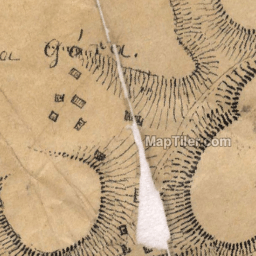 a góra.
MapTiler.com